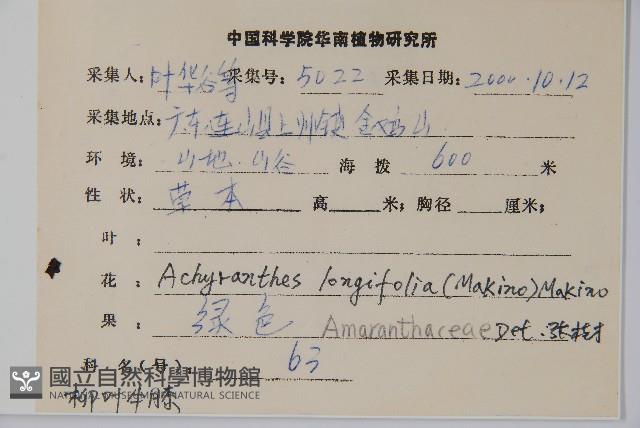 中国科学院华南植物研究所
采集人: 叶华谷等 采集号: 5022 采集日期: 2000.10.12
采集地点: 广东连山县上帅镇金鸡山
环 境: 山地.山谷 海 拨 600 米
性 状: 草本 高 米; 胸径 厘米;
叶 :
花 : Achyranthes longifolia (Makino) Makino
果 : 绿色 Amaranthaceae Det. 张桂才
科 名(号): 63
國立自然科學博物館
NATIONAL MUSEUM OF NATURAL SCIENCE
柳叶牛膝